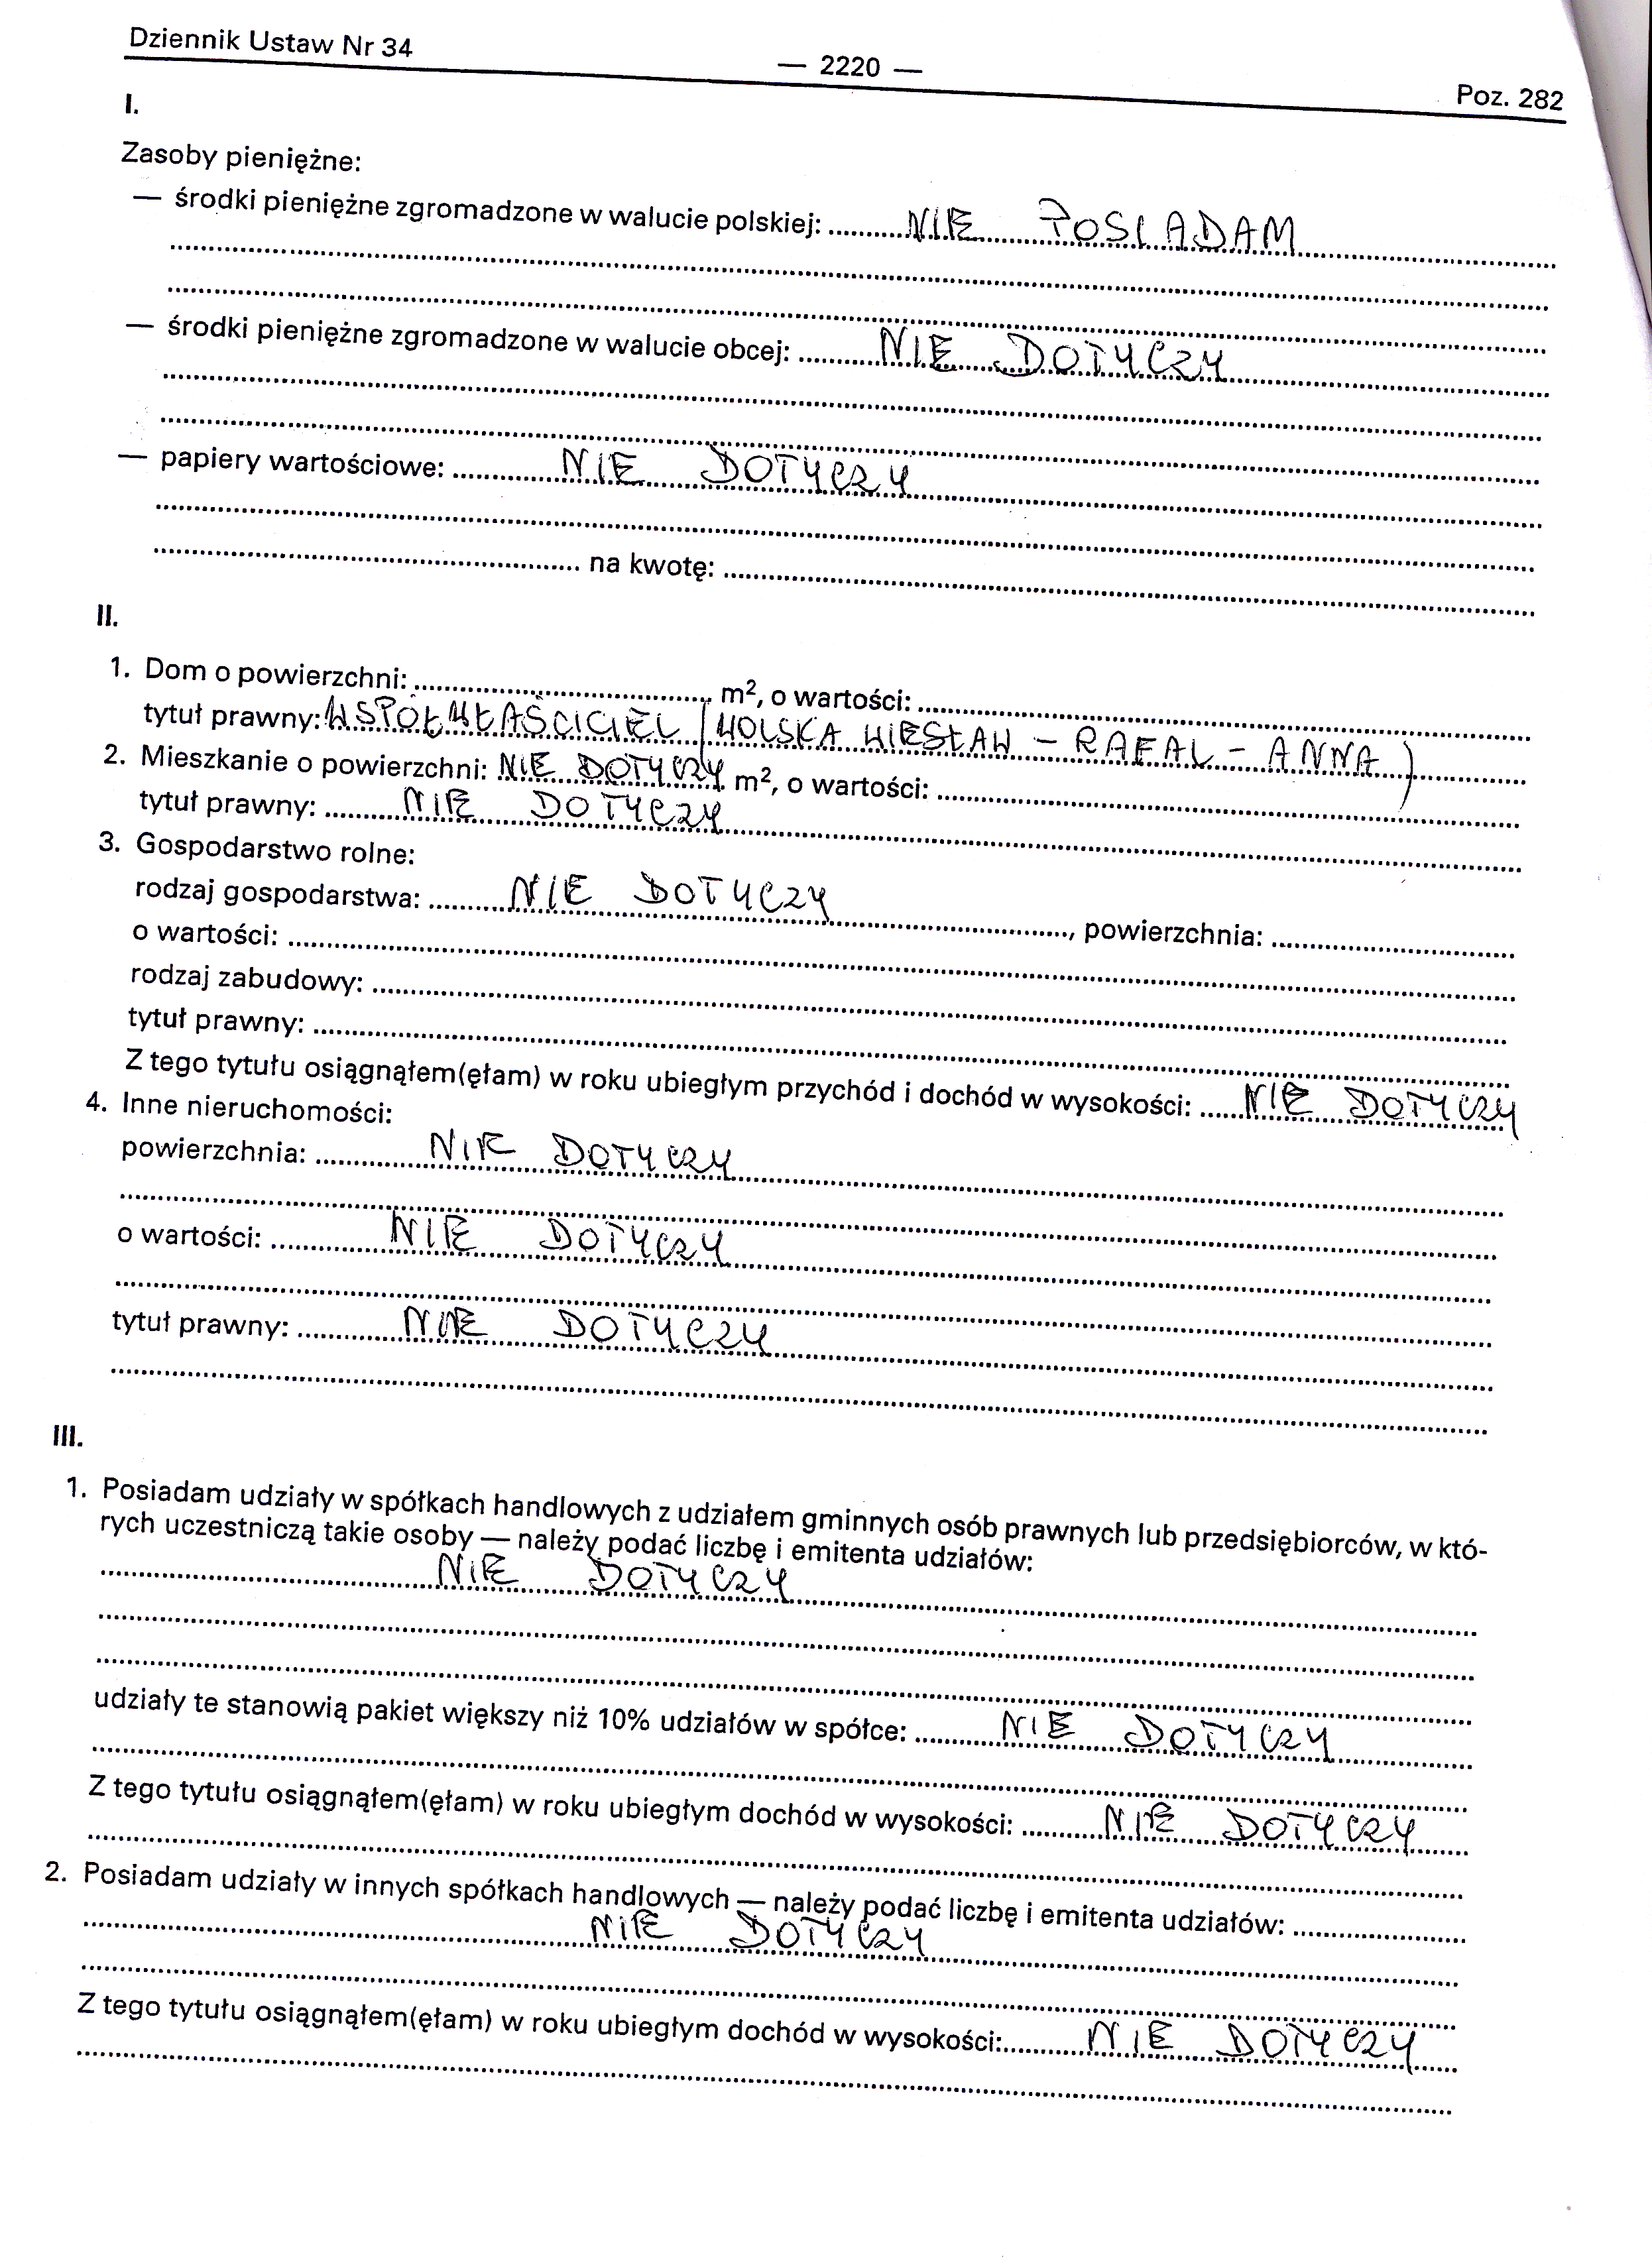 Dziennik Ustaw Nr 34
— 2220 —
Poz. 282
I.
Zasoby pieniężne:
— środki pieniężne zgromadzone w walucie polskiej: NIE POSIADAM
— środki pieniężne zgromadzone w walucie obcej: NIE DOTYCZY
— papiery wartościowe: NIE DOTYCZY
na kwotę:
II.
1. Dom o powierzchni: m², o wartości:
tytuł prawny: WSPÓŁWŁAŚCICIEL (WOLSKA WIESŁAW – RAFAL – ANNA)
2. Mieszkanie o powierzchni: NIE DOTYCZY m², o wartości:
tytuł prawny: NIE DOTYCZY
3. Gospodarstwo rolne:
rodzaj gospodarstwa: NIE DOTYCZY, powierzchnia:
o wartości:
rodzaj zabudowy:
tytuł prawny:
Z tego tytułu osiągnąłem(ęłam) w roku ubiegłym przychód i dochód w wysokości: NIE DOTYCZY
4. Inne nieruchomości:
powierzchnia: NIE DOTYCZY
o wartości: NIE DOTYCZY
tytuł prawny: NIE DOTYCZY
III.
1. Posiadam udziały w spółkach handlowych z udziałem gminnych osób prawnych lub przedsiębiorców, w któ-
rych uczestniczą takie osoby — należy podać liczbę i emitenta udziałów:
NIE DOTYCZY
udziały te stanowią pakiet większy niż 10% udziałów w spółce: NIE DOTYCZY
Z tego tytułu osiągnąłem(ęłam) w roku ubiegłym dochód w wysokości: NIE DOTYCZY
2. Posiadam udziały w innych spółkach handlowych — należy podać liczbę i emitenta udziałów:
NIE DOTYCZY
Z tego tytułu osiągnąłem(ęłam) w roku ubiegłym dochód w wysokości: NIE DOTYCZY